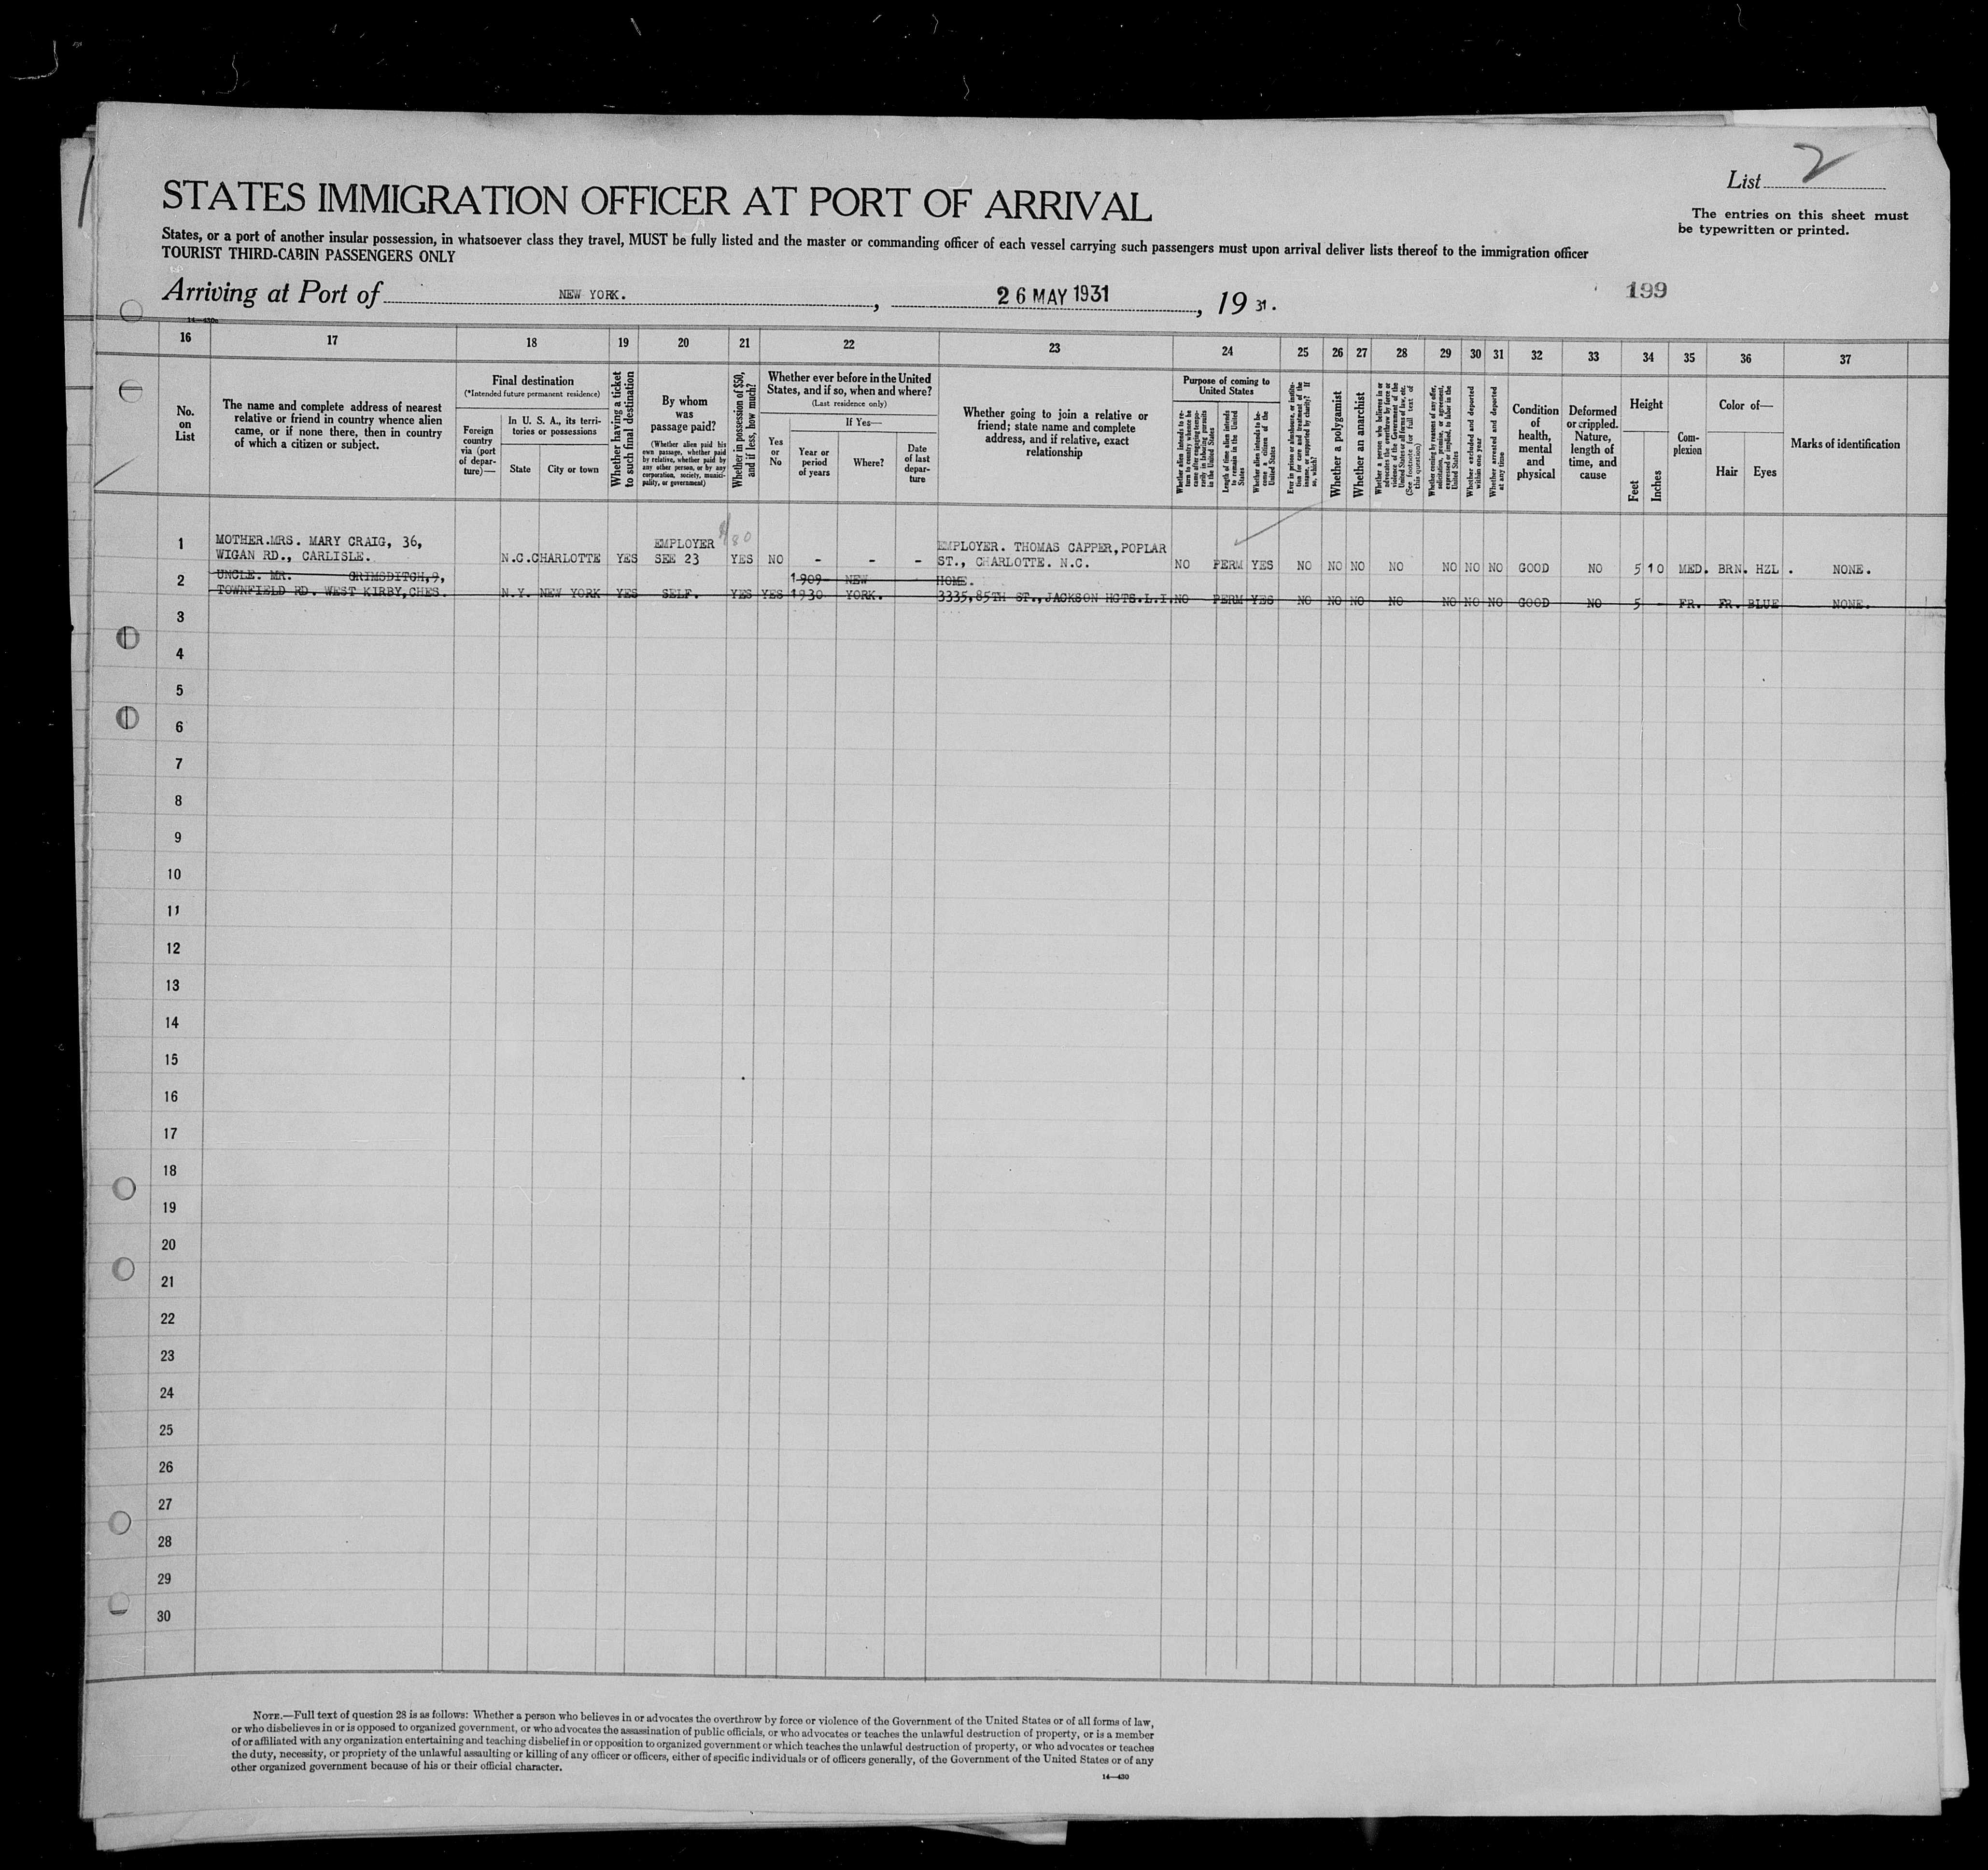 List 2
The entries on this sheet must
be typewritten or printed.
STATES IMMIGRATION OFFICER AT PORT OF ARRIVAL
States, or a port of another insular possession, in whatsoever class they travel, MUST be fully listed and the master or commanding officer of each vessel carrying such passengers must upon arrival deliver lists thereof to the immigration officer
TOURIST THIRD-CABIN PASSENGERS ONLY
Arriving at Port of NEW YORK. , 26 MAY 1931 , 19 31.
199
14—430a
16 17 18 19 20 21 22 23 24 25 26 27 28 29 30 31 32 33 34 35 36 37
No.
on
List
The name and complete address of nearest
relative or friend in country whence alien
came, or if none there, then in country
of which a citizen or subject.
Final destination
(*Intended future permanent residence)
Foreign
country
via (port
of depar-
ture)—
In U. S. A., its terri-
tories or possessions
State
City or town
Whether having a ticket
to such final destination
By whom
was
passage paid?
(Whether alien paid his
own passage, whether paid
by relative, whether paid by
any other person, or by any
corporation, society, munici-
pality, or government)
Whether in possession of $50,
and if less, how much?
Whether ever before in the United
States, and if so, when and where?
(Last residence only)
Yes
or
No
If Yes—
Year or
period
of years
Where?
Date
of last
depar-
ture
Whether going to join a relative or
friend; state name and complete
address, and if relative, exact
relationship
Purpose of coming to
United States
Whether alien intends to re-
turn to country whence he
came after engaging tempo-
rarily in laboring pursuits
in the United States
Length of time alien intends
to remain in the United
States
Whether alien intends to be-
come a citizen of the
United States
Ever in prison or almshouse, or institu-
tion for care and treatment of the
insane, or supported by charity? If
so, which?
Whether a polygamist
Whether an anarchist
Whether a person who believes in or
advocates the overthrow by force or
violence of the Government of the
United States or all forms of law, etc.
(See footnote for full text of
this question)
Whether coming by reasons of any offer,
solicitation, promise, or agreement,
expressed or implied, to labor in the
United States
Whether excluded and deported
within one year
Whether arrested and deported
at any time
Condition
of
health,
mental
and
physical
Deformed
or crippled.
Nature,
length of
time, and
cause
Height
Feet
Inches
Com-
plexion
Color of—
Hair
Eyes
Marks of identification
1 MOTHER.MRS. MARY CRAIG, 36, EMPLOYER EMPLOYER. THOMAS CAPPER,POPLAR
WIGAN RD., CARLISLE. N.C.CHARLOTTE YES SEE 23 YES NO - - - ST., CHARLOTTE. N.C. NO PERM YES NO NO NO NO NO NO NO GOOD NO 5 10 MED. BRN. HZL . NONE.
2 UNCLE. MR. GRIMSDITCH,9, 1909- NEW HOME.
TOWNFIELD RD. WEST KIRBY,CHES. N.Y. NEW YORK YES SELF. YES YES 1930 YORK. 3335,85TH ST.,JACKSON HGTS.L.I. NO PERM YES NO NO NO NO NO NO NO GOOD NO 5 - FR. FR. BLUE NONE.
3
4
5
6
7
8
9
10
11
12
13
14
15
16
17
18
19
20
21
22
23
24
25
26
27
28
29
30
NOTE.—Full text of question 28 is as follows: Whether a person who believes in or advocates the overthrow by force or violence of the Government of the United States or of all forms of law,
or who disbelieves in or is opposed to organized government, or who advocates the assassination of public officials, or who advocates or teaches the unlawful destruction of property, or is a member
of or affiliated with any organization entertaining and teaching disbelief in or opposition to organized government or which teaches the unlawful destruction of property, or who advocates or teaches
the duty, necessity, or propriety of the unlawful assaulting or killing of any officer or officers, either of specific individuals or of officers generally, of the Government of the United States or of any
other organized government because of his or their official character.
14—430